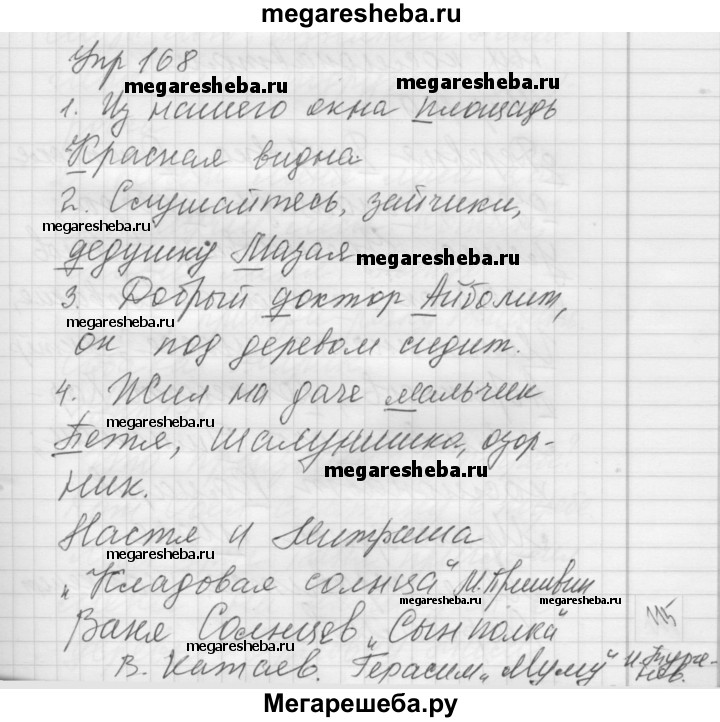 megaresheba.ru
Упр 168
megaresheba.ru megaresheba.ru
1. Из нашего окна площадь
Красная видна
2. Слушайтесь, зайчики,
megaresheba.ru
дедушку Мазая megaresheba.ru
3. Добрый доктор Айболит,
megaresheba.ru megaresheba.ru
он под деревом сидит.
4. Жил на даче мальчик
megaresheba.ru
Петя, шалунишка, озор-
megaresheba.ru
ник.
Настя и Митраша
megaresheba.ru
„Кладовая солнца“ М. Пришвин
megaresheba.ru megaresheba.ru
Ваня Солнцев „Сын полка“
115
В. Катаев. Герасим „Муму“ И. Турге-
нев.
Мегарешеба.ру